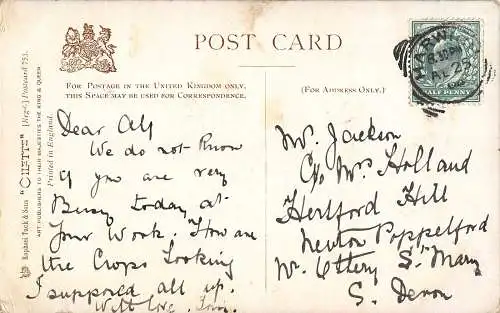 POST CARD
FOR POSTAGE IN THE UNITED KINGDOM ONLY,
THIS SPACE MAY BE USED FOR CORRESPONDENCE.
(FOR ADDRESS ONLY.)
Raphael Tuck & Sons "OILETTE" [Regd.] Postcard 753.
ART PUBLISHERS TO THEIR MAJESTIES THE KING & QUEEN
Printed in England.
HALF PENNY
Dear Alf
We do not know
if you are very
Busy today at
your work. How are
the Crops looking
I supposed all up.
With love.
Mr Jackson
C/o Mrs Holland
Hertford Hill
Newton Poppelford
Nr. Ottery St Mary
S. Devon